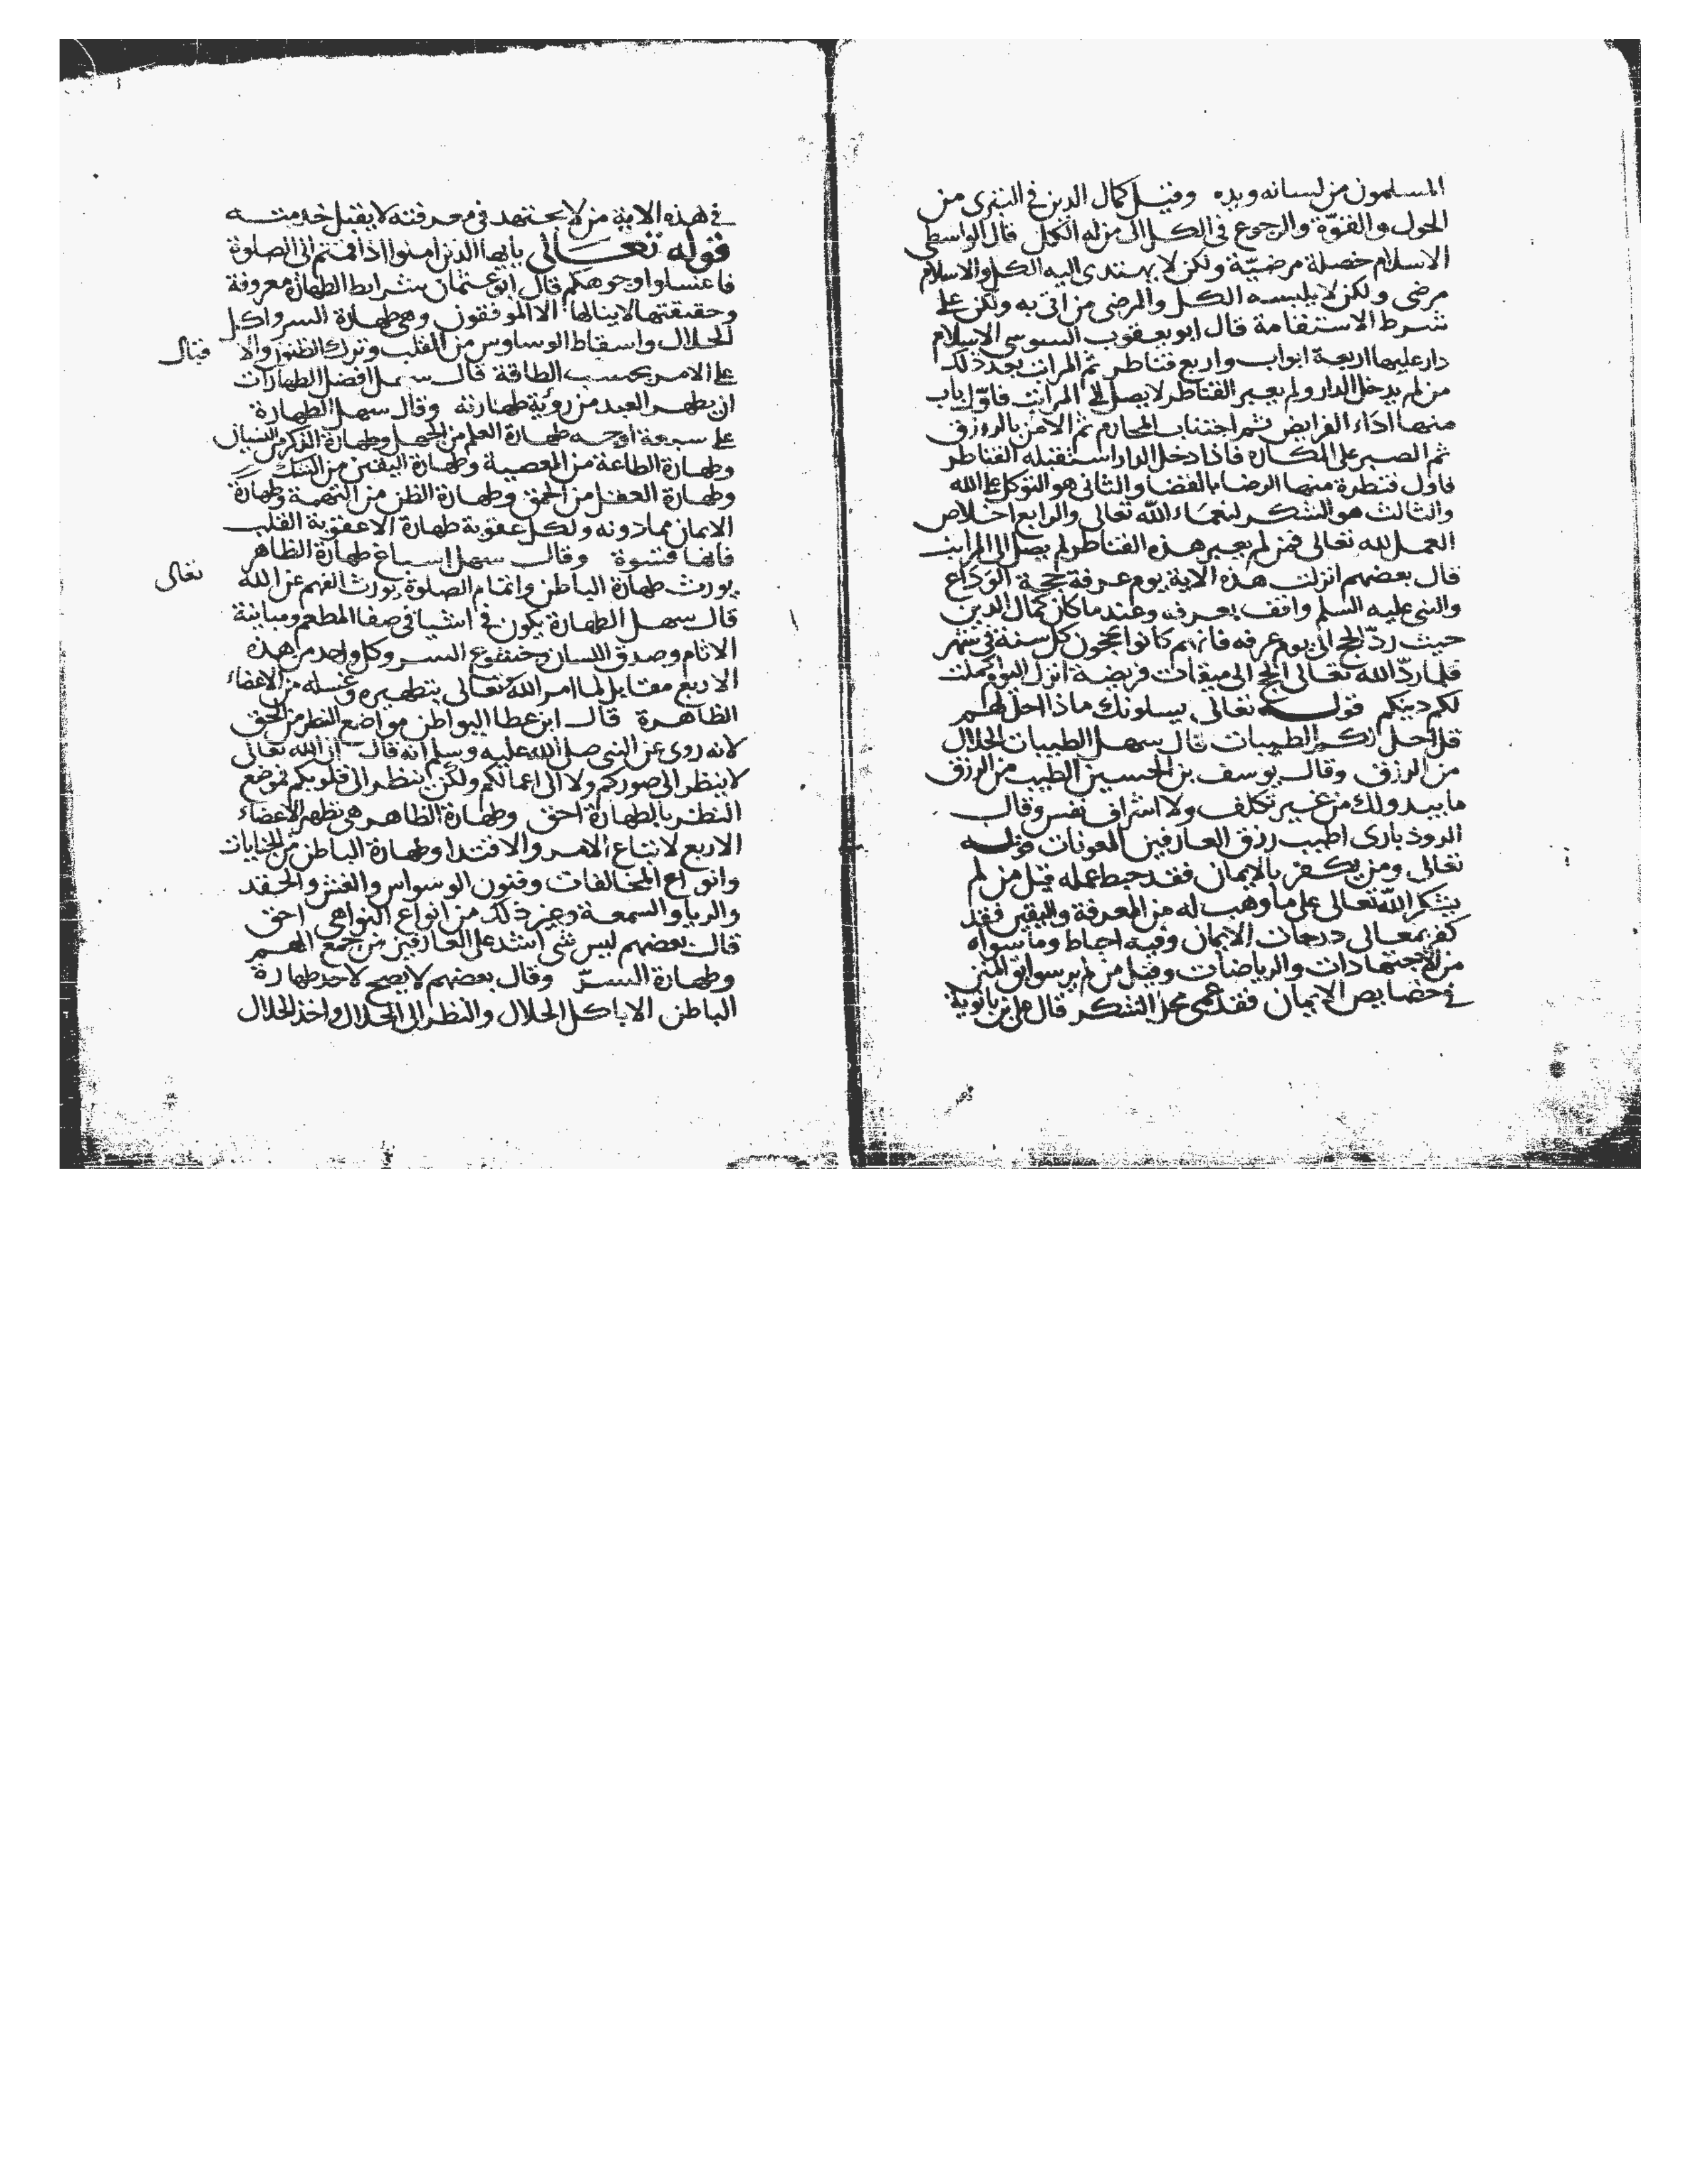 المسلمون من لسانه ويده وقيل كمال الدين في التبرى من
الحول والقوّة والرجوع في الكل الى من له الكل قال الواسطى
الاسلام خصلة مرضيّة ولكن لا يهتدى اليه الكل والاسلام
مرضى ولكن لا يلبسه الكل والمرضى من اتى به ولكن على
شرط الاستقامة قال ابو يعقوب السوسى الاسلام
دار عليها اربعة ابواب واربع قناطر ثم المراتب بعد ذلك
من لم يدخل الدار ولم يعبر القناطر لا يصل الى المراتب فاوّل باب
منها اداء الفرايض ثم اجتناب المحارم ثم الامن بالرزق
ثم الصبر على المكاره فاذا دخل الدار استقبله القناطر
فاول قنطرة منها الرضا بالقضا والثانى هو التوكل على الله
والثالث هو الشكر لنعماء الله تعالى والرابع اخلاص
العمل لله تعالى فمن لم يعبر هذه القناطر لم يصل الى المراتب
قال بعضهم انزلت هذه الاية يوم عرفة حجة الوداع
والنبى عليه السلم واقف بعرفه وعندما كان كمال الدين
حيث ردّ الحج الى يوم عرفه فانهم كانوا يحجون كل سنة في شهر
فلما ردّ الله تعالى الحج الى ميقات فريضة انزل اليوم اكملت
لكم دينكم قوله تعالى يسلونك ماذا احل لهم
قل احل لكم الطيبات قال سهل الطيبات الحلال
من الرزق وقال يوسف بن الحسين الطيب من الرزق
ما يبدو لك من غير تكلف ولا اشراف نفس وقال
الروذبارى اطيب رزق العارفين المعونات قوله
تعالى ومن يكفر بالايمان فقد حبط عمله قيل من لم
يشكر الله تعالى على ما وهب له من المعرفة واليقين فقد
كفر بمعالى درجات الايمان وفيه احباط وما سواه
من الاجتهادات والرياضات وقيل من لم ير سوابق المنن
في خصايص الايمان فقد عمى محل الشكر قال على بن بابوية
في هذه الاية من لا يجتهد فى معرفته لا يقبل خدمته
قوله تعالى يايها الذين امنوا اذا قمتم الى الصلوة
فاغسلوا وجوهكم قال ابو عثمان شرايط الطهارة معروفة
وحقيقتها لا ينالها الا الموفقون وهى طهارة السر واكل
الحلال واسقاط الوساوس من القلب وترك الظنون والا قبال
على الامر بحسب الطاقة قال سهل افضل الطهارات
ان يطهر العبد من رؤية طهارته وقال سهل الطهارة
على سبعة اوجه طهارة العلم من الجهل وطهارة الذكر من النسيان
وطهارة الطاعة من المعصية وطهارة اليقين من الشك
وطهارة العقل من الحمق وطهارة الظن من التهمة وطهارة
الايمان مما دونه ولكل عقوبة طهارة الا عقوبة القلب
فانها قسوة وقال سهل اسباغ طهارة الظاهر
يورث طهارة الباطن واتمام الصلوة يورث الفهم عن الله تعالى
قال سهل الطهارة يكون في اشيا في صفا المطعم ومباينة
الاثام وصدق اللسان وخشوع السر وكل واحد من هذه
الاربع مقابل لما امر الله تعالى بتطهيره وغسله من الاعضاء
الظاهرة قال ابن عطا البواطن مواضع النظر من الحق
لانه روى عن النبى صلى الله عليه وسلم انه قال ان الله تعالى
لا ينظر الى صوركم ولا الى اعمالكم ولكن ينظر الى قلوبكم فموضع
النظر بالطهارة احق وطهارة الظاهر هى تطهر الاعضاء
الاربع لاتباع الامر والاقتدا وطهارة الباطن من الخيانات
وانواع المخالفات وفنون الوسواس والغش والحقد
والريا والسمعة وغير ذلك من انواع النواهى احق
قال بعضهم ليس شى اشد على العارفين من جمع الهم
وطهارة السرّ وقال بعضهم لا يصح لاحد طهارة
الباطن الا باكل الحلال والنظر الى الحلال واخذ الحلال